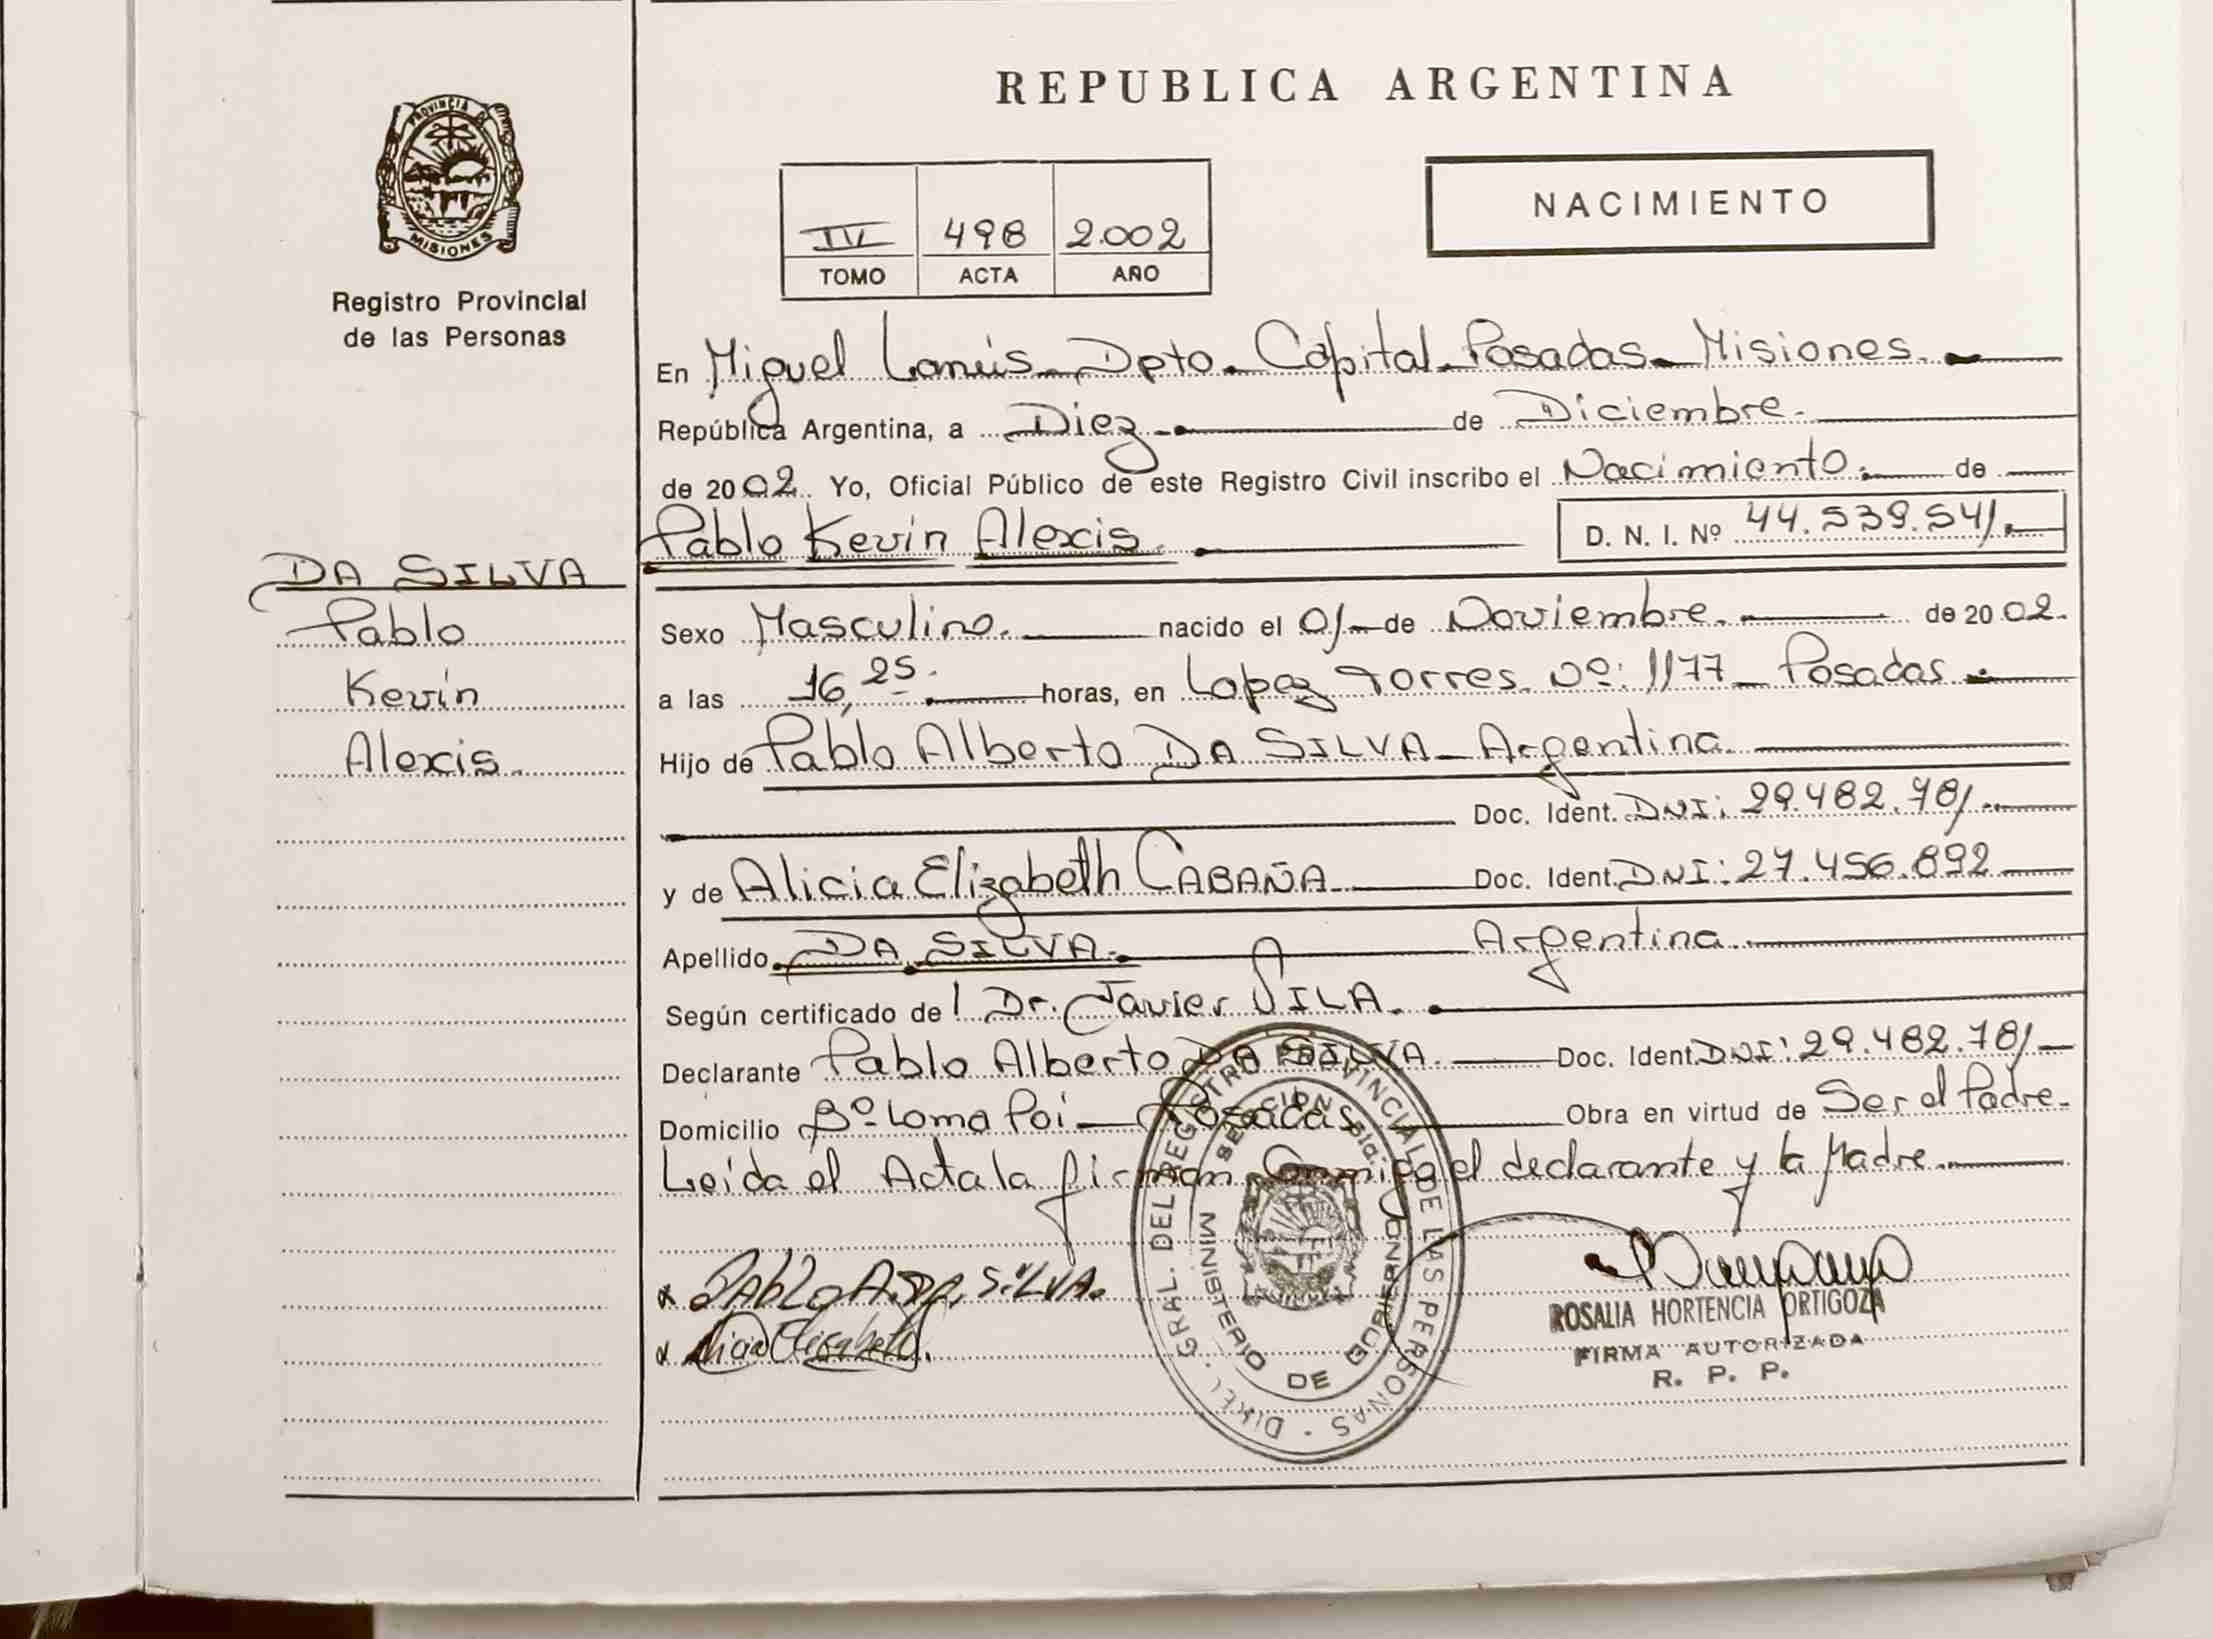 REPUBLICA ARGENTINA
PROVINCIA DE MISIONES
Registro Provincial
de las Personas
NACIMIENTO
IV 498 2.002
TOMO ACTA AÑO
En Miguel Lanús - Dpto. Capital - Posadas - Misiones.
República Argentina, a Diez de Diciembre.
de 2002. Yo, Oficial Público de este Registro Civil inscribo el Nacimiento. de
Pablo Kevin Alexis. D. N. I. Nº 44.539.541.
DA SILVA
Pablo
Kevin
Alexis.
Sexo Masculino. nacido el 01 - de Noviembre. de 2002.
a las 16,25. horas, en Lopez Torres. Nº: 1177 - Posadas
Hijo de Pablo Alberto DA SILVA - Argentina.
Doc. Ident. DNI: 29.482.781.
y de Alicia Elizabeth CABAÑA. Doc. Ident. DNI: 27.456.892
Apellido DA SILVA. Argentina.
Según certificado del Dr. Javier VILA.
Declarante Pablo Alberto DA SILVA. Doc. Ident. DNI: 29.482.781
Domicilio Bº Loma Poi - Posadas Obra en virtud de Ser el Padre.
Leida el Acta la firman Conmigo el declarante y la Madre.
x PAbLo A. DA SiLVA.
x Alicia Elizabeth.
DIREC. GRAL. DEL REGISTRO PROVINCIAL DE LAS PERSONAS
MINISTERIO DE GOBIERNO
SECCION
ROSALIA HORTENCIA ORTIGOZA
FIRMA AUTORIZADA
R. P. P.